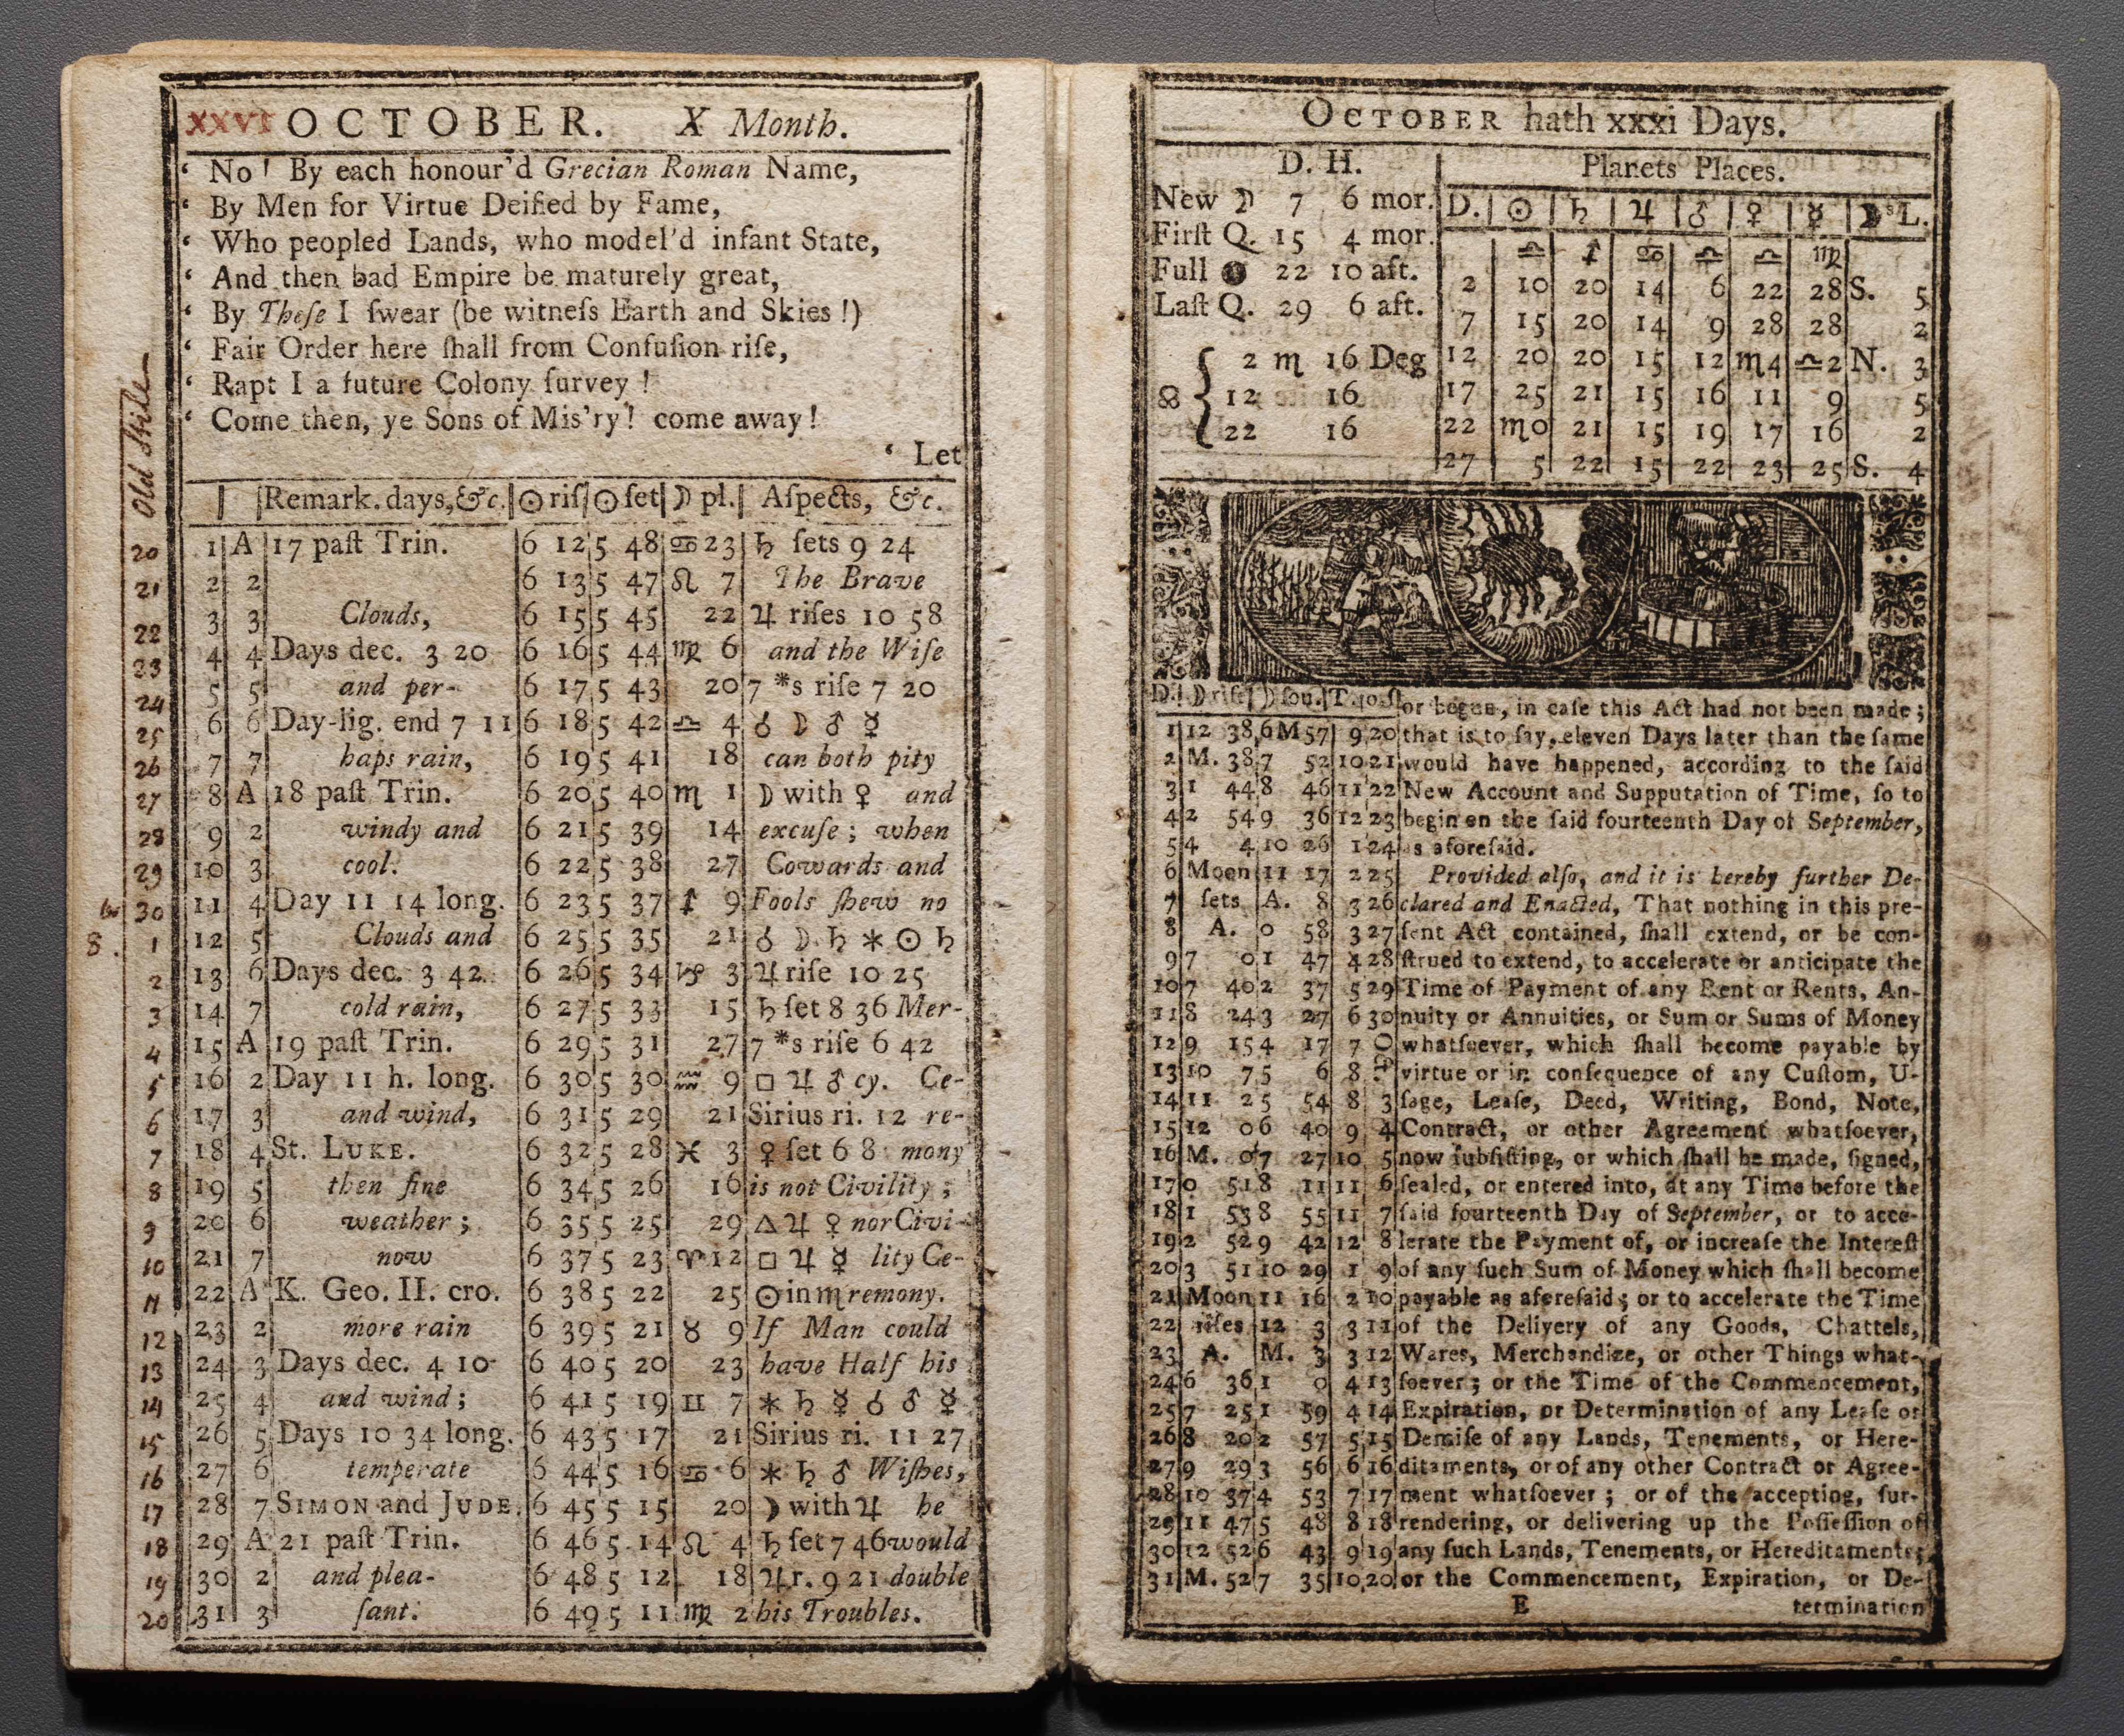 XXVI OCTOBER. X Month.
‘ No! By each honour'd Grecian Roman Name,
‘ By Men for Virtue Deified by Fame,
‘ Who peopled Lands, who model'd infant State,
‘ And then bad Empire be maturely great,
‘ By Theſe I ſwear (be witneſs Earth and Skies!)
‘ Fair Order here ſhall from Confuſion riſe,
‘ Rapt I a future Colony ſurvey!
‘ Come then, ye Sons of Mis'ry! come away!
‘ Let
Old Stile
Remark. days, &c. ☉ riſ ☉ ſet ☽ pl. Aſpects, &c.
20 1 A 17 paſt Trin. 6 12 5 48 ♋ 23 ♄ ſets 9 24
21 2 2 6 13 5 47 ♌ 7 The Brave
22 3 3 Clouds, 6 15 5 45 22 ♃ riſes 10 58
23 4 4 Days dec. 3 20 6 16 5 44 ♍ 6 and the Wiſe
24 5 5 and per- 6 17 5 43 20 7 *s riſe 7 20
25 6 6 Day-lig. end 7 11 6 18 5 42 ♎ 4 ☌ ☽ ♂ ☿
26 7 7 haps rain, 6 19 5 41 18 can both pity
27 8 A 18 paſt Trin. 6 20 5 40 ♏ 1 ☽ with ♀ and
28 9 2 windy and 6 21 5 39 14 excuſe; when
29 10 3 cool. 6 22 5 38 27 Cowards and
30 11 4 Day 11 14 long. 6 23 5 37 ♐ 9 Fools ſhew no
8. 1 12 5 Clouds and 6 25 5 35 21 ☌ ☽ ♄ ⚹ ☉ ♄
2 13 6 Days dec. 3 42 6 26 5 34 ♑ 3 ♃ riſe 10 25
3 14 7 cold rain, 6 27 5 33 15 ♄ ſet 8 36 Mer-
4 15 A 19 paſt Trin. 6 29 5 31 27 7 *s riſe 6 42
5 16 2 Day 11 h. long. 6 30 5 30 ♒ 9 □ ♃ ♂ cy. Ce-
6 17 3 and wind, 6 31 5 29 21 Sirius ri. 12 re-
7 18 4 St. LUKE. 6 32 5 28 ♓ 3 ♀ ſet 6 8 mony
8 19 5 then fine 6 34 5 26 16 is not Civility;
9 20 6 weather; 6 35 5 25 29 △ ♃ ♀ nor Civi-
10 21 7 now 6 37 5 23 ♈ 12 □ ♃ ☿ lity Ce-
11 22 A K. Geo. II. cro. 6 38 5 22 25 ☉ in ♏ remony.
12 23 2 more rain 6 39 5 21 ♉ 9 If Man could
13 24 3 Days dec. 4 10 6 40 5 20 23 have Half his
14 25 4 and wind; 6 41 5 19 ♊ 7 ⚹ ♄ ☿ ☌ ♂ ☿
15 26 5 Days 10 34 long. 6 43 5 17 21 Sirius ri. 11 27
16 27 6 temperate 6 44 5 16 ♋ 6 ⚹ ♄ ♂ Wiſhes,
17 28 7 SIMON and JUDE. 6 45 5 15 20 ☽ with ♃ he
18 29 A 21 paſt Trin. 6 46 5 14 ♌ 4 ♄ ſet 7 46 would
19 30 2 and plea- 6 48 5 12 18 ♃ r. 9 21 double
20 31 3 ſant. 6 49 5 11 ♍ 2 his Troubles.
OCTOBER hath xxxi Days.
D. H.
New ☽ 7 6 mor.
Firſt Q. 15 4 mor.
Full ● 22 10 aft.
Laſt Q. 29 6 aft.
☊ { 2 ♏ 16 Deg
12 16
22 16
Planets Places.
D. ☉ ♄ ♃ ♂ ♀ ☿ ☽'s L.
♎ ♐ ♋ ♎ ♎ ♍
2 10 20 14 6 22 28 S. 5
7 15 20 14 9 28 28 2
12 20 20 15 12 ♏4 ♎2 N. 3
17 25 21 15 16 11 9 5
22 ♏0 21 15 19 17 16 2
27 5 22 15 22 23 25 S. 4
D. ☽ riſe ☽ ſou. T. or begun, in caſe this Act had not been made;
1 12 38 6M57 9 20 that is to ſay, eleven Days later than the ſame
2 M. 38 7 52 10 21 would have happened, according to the ſaid
3 1 44 8 46 11 22 New Account and Supputation of Time, ſo to
4 2 54 9 36 12 23 begin on the ſaid fourteenth Day of September,
5 4 4 10 26 1 24 as aforeſaid.
6 Moon 11 17 2 25 Provided alſo, and it is hereby further De-
7 ſets A. 8 3 26 clared and Enacted, That nothing in this pre-
8 A. 0 58 3 27 ſent Act contained, ſhall extend, or be con-
9 7 0 1 47 4 28 ſtrued to extend, to accelerate or anticipate the
10 7 40 2 37 5 29 Time of Payment of any Rent or Rents, An-
11 8 24 3 27 6 30 nuity or Annuities, or Sum or Sums of Money
12 9 15 4 17 7 whatſoever, which ſhall become payable by
13 10 7 5 6 8 virtue or in conſequence of any Cuſtom, U-
14 11 2 5 54 8 3 ſage, Leaſe, Deed, Writing, Bond, Note,
15 12 0 6 40 9 4 Contract, or other Agreement whatſoever,
16 M. 0 7 27 10 5 now ſubſiſting, or which ſhall be made, ſigned,
17 0 51 8 11 11 6 ſealed, or entered into, at any Time before the
18 1 53 8 55 11 7 ſaid fourteenth Day of September, or to acce-
19 2 52 9 42 12 8 lerate the Payment of, or increaſe the Intereſt
20 3 51 10 29 1 9 of any ſuch Sum of Money which ſhall become
21 Moon 11 16 2 10 payable as aforeſaid; or to accelerate the Time
22 riſes 12 3 3 11 of the Delivery of any Goods, Chattels,
23 A. M. 3 3 12 Wares, Merchandize, or other Things what-
24 6 36 1 0 4 13 ſoever; or the Time of the Commencement,
25 7 25 1 59 4 14 Expiration, or Determination of any Leaſe or
26 8 20 2 57 5 15 Demiſe of any Lands, Tenements, or Here-
27 9 29 3 56 6 16 ditaments, or of any other Contract or Agree-
28 10 37 4 53 7 17 ment whatſoever; or of the accepting, ſur-
29 11 47 5 48 8 18 rendering, or delivering up the Poſſeſſion of
30 12 52 6 43 9 19 any ſuch Lands, Tenements, or Hereditaments;
31 M. 52 7 35 10 20 or the Commencement, Expiration, or De-
E termination